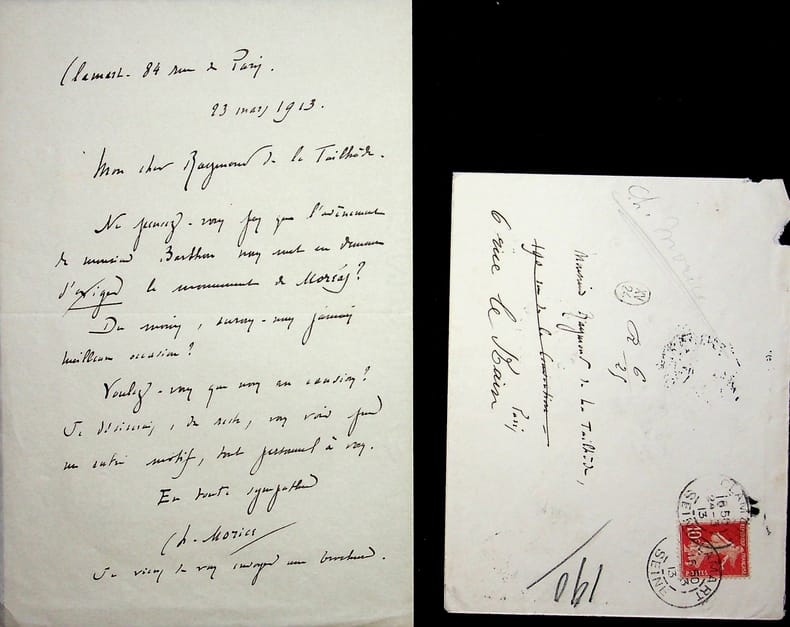 Clamart - 84 rue de Paris.
23 mars 1913.
Mon cher Raymond de la Tailhède.
Ne pensez-vous pas que l'avènement
de monsieur Barthou nous met en demeure
d'exiger le monument de Moréas?
Du moins, aurons-nous jamais
meilleure occasion?
Voulez-vous que nous en causions?
Je désirerais, du reste, vous voir pour
un autre motif, tout personnel à vous.
En toute sympathie
Ch. Morice
Je viens de vous envoyer une brochure.
Ch. Morice
Monsieur Raymond de La Tailhède,
rue de la Convention
Paris
6 rue Le
XV
22
R 6
25
190
CLAMART
SEINE
13
10